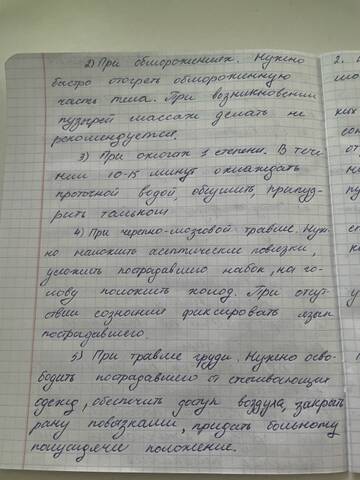 2) При обморожениях. Нужно
быстро отогреть обмороженную
часть тела. При возникновении
пузырей массаж делать не
рекомендуется.
3) При ожогах 1 степени. В тече
нии 10-15 минут охлаждать
проточной водой, обсушить, припуд-
рить тальком
4) При черепно-мозговой травме. Нуж-
но наложить асептические повязки,
уложить пострадавшего набок, на го-
лову положить холод. При отсут
ствии сознания фиксировать язык
пострадавшего.
5) При травме груди. Нужно осво-
бодить пострадавшего от стягивающих
одежд, обеспечить доступ воздуха, закрыть
рану повязками, придать больному
полусидячи положение.